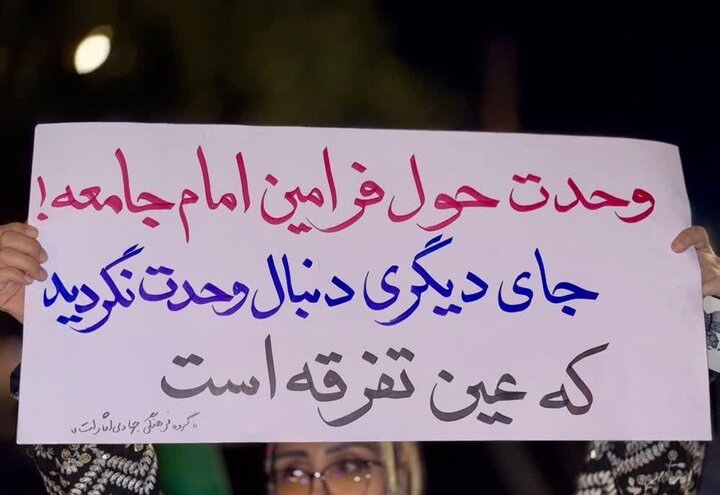 وحدت حول فرامین امام جامعه!
جای دیگری دنبال وحدت نگردید
که عین تفرقه است
«گروه فرهنگی جهادی اثارات»